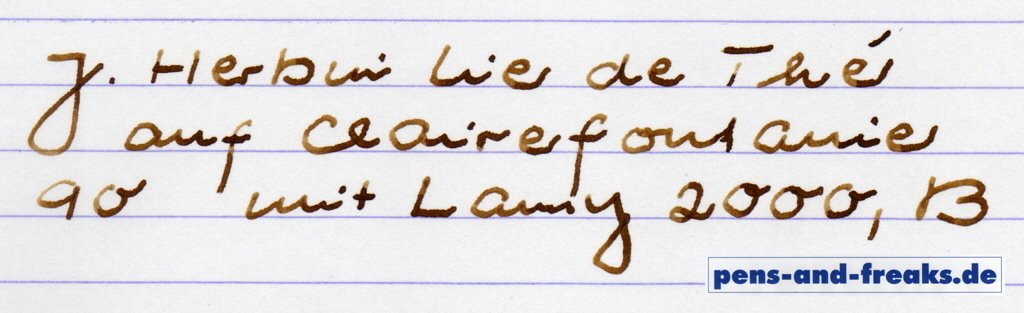 J. Herbin Lie de Thé
auf Clairefontaine
90 mit Lamy 2000, B
pens-and-freaks.de